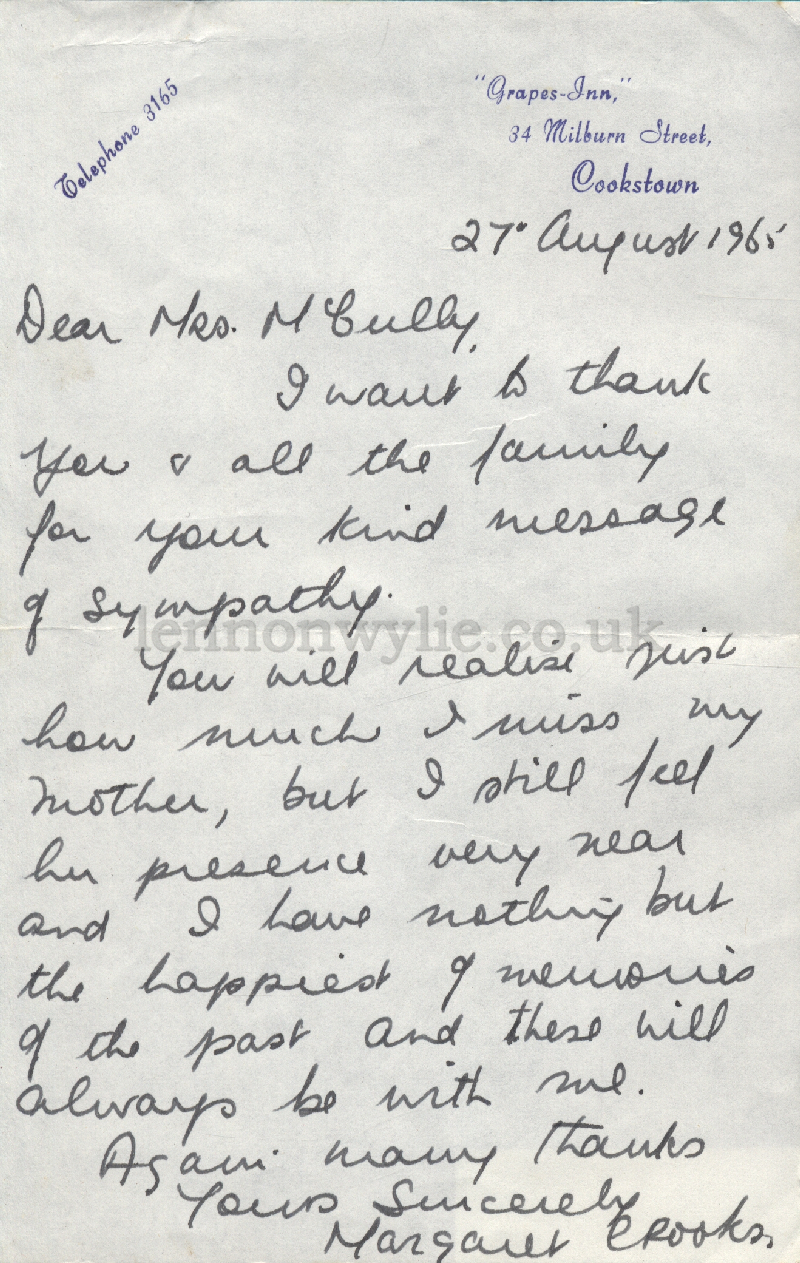 Telephone 3165
"Grapes-Inn,"
34 Milburn Street,
Cookstown
27" August 1965
Dear Mrs. McCully,
I want to thank
you & all the family
for your kind message
of sympathy.
lennonwylie.co.uk
You will realise just
how much I miss my
Mother, but I still feel
her presence very near
and I have nothing but
the happiest of memories
of the past and these will
always be with me.
Again many thanks
Yours Sincerely
Margaret Crooks.